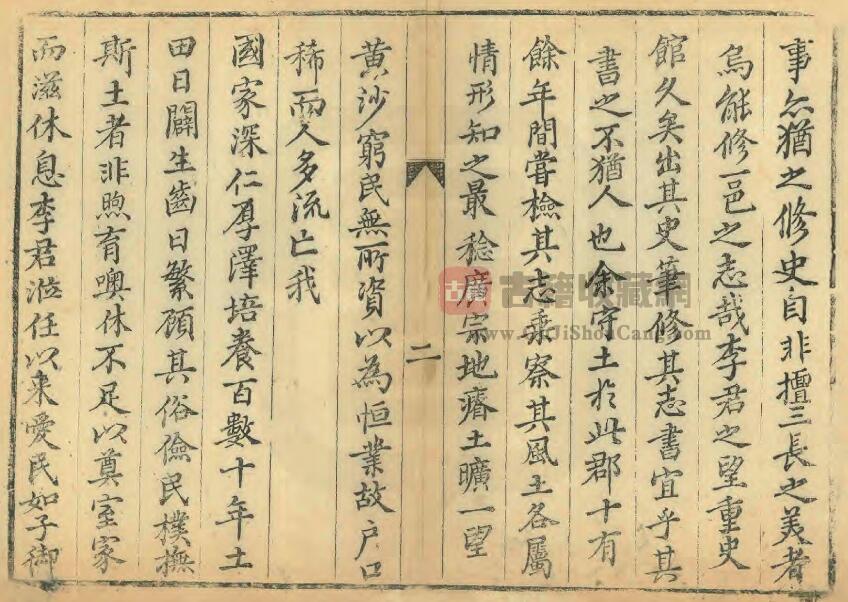 事亦猶之修史自非擅三長之美者
烏能修一邑之志哉李君之望重史
館久矣出其史筆修其志書宜乎其
書之不猶人也余守土於此郡十有
餘年間嘗檢其志乘察其風土各屬
情形知之最稔廣宗地瘠土曠一望
二
黄沙窮民無所資以為恒業故户口
稀而人多流亡我
國家深仁厚澤培養百數十年土
田日闢生齒日繁顧其俗儉民樸撫
斯土者非煦育噢休不足以奠室家
而滋休息李君涖任以来愛民如子御
古籍
古籍收藏網
www.GuJiShouCang.com